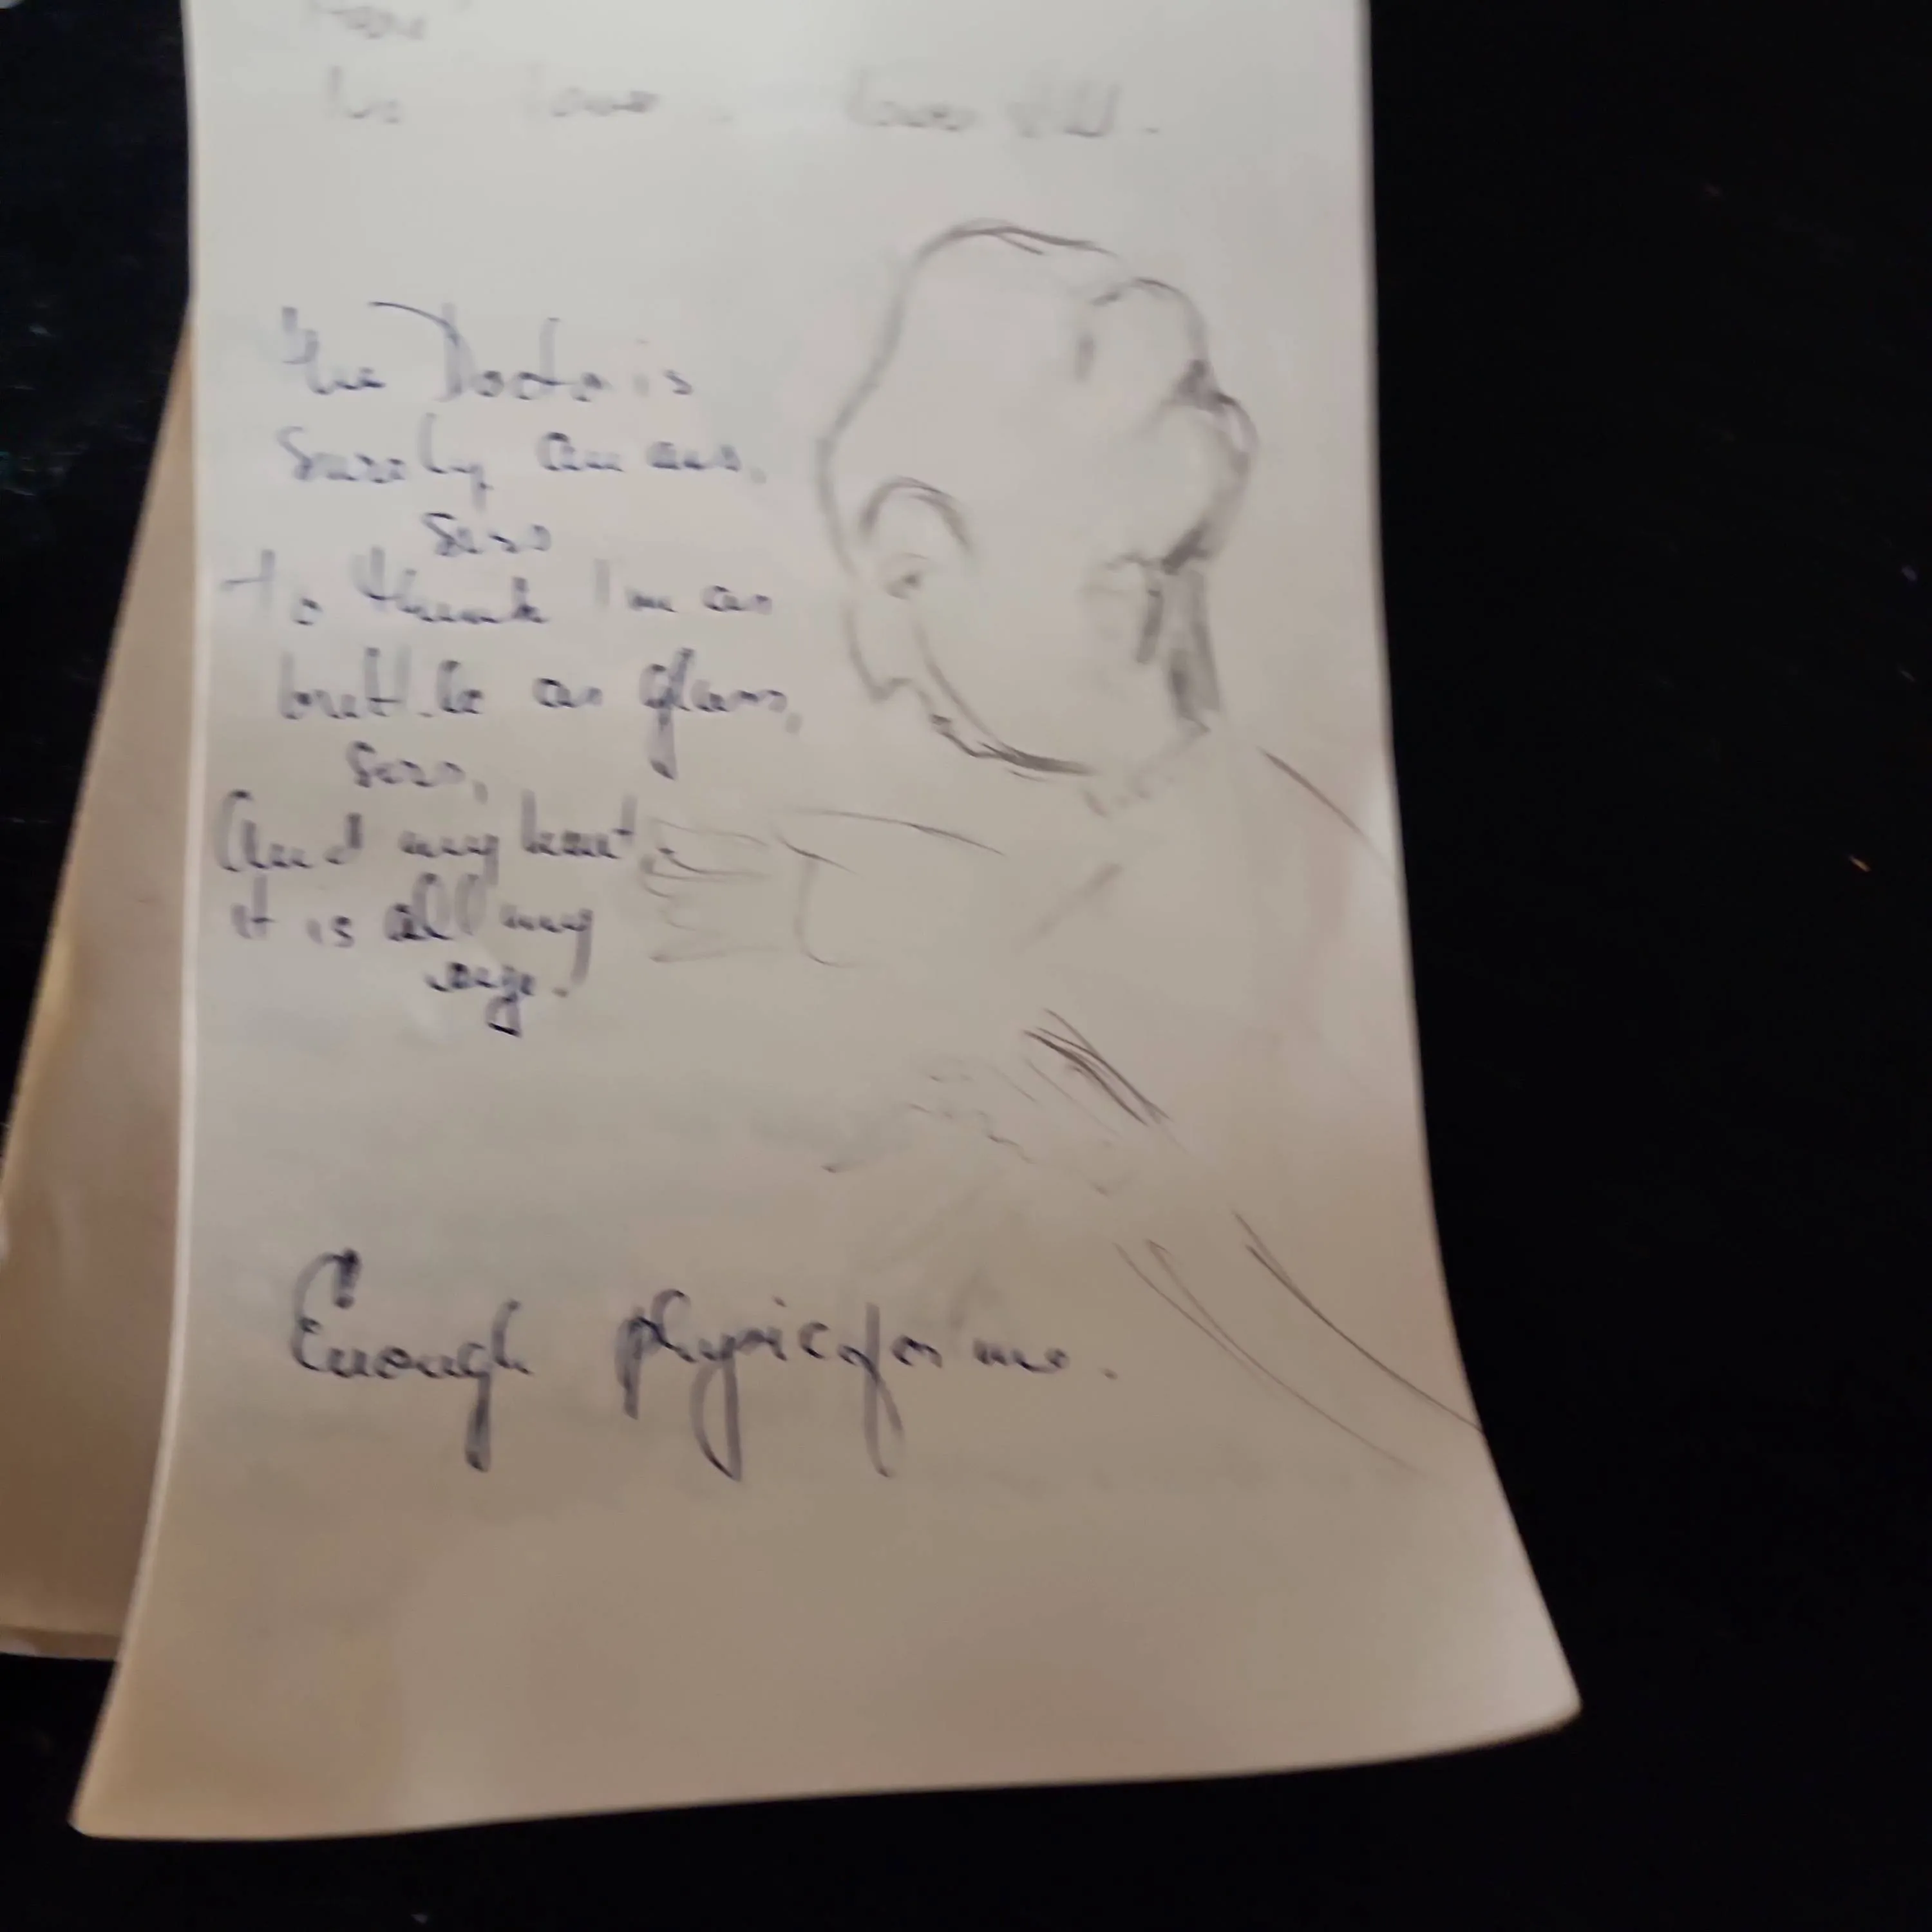 the Doctor is
surely an ass,
sirs
to think I'm as
brittle as glass,
sirs,
And my heart
it is all my
eye.
Enough physic for me.